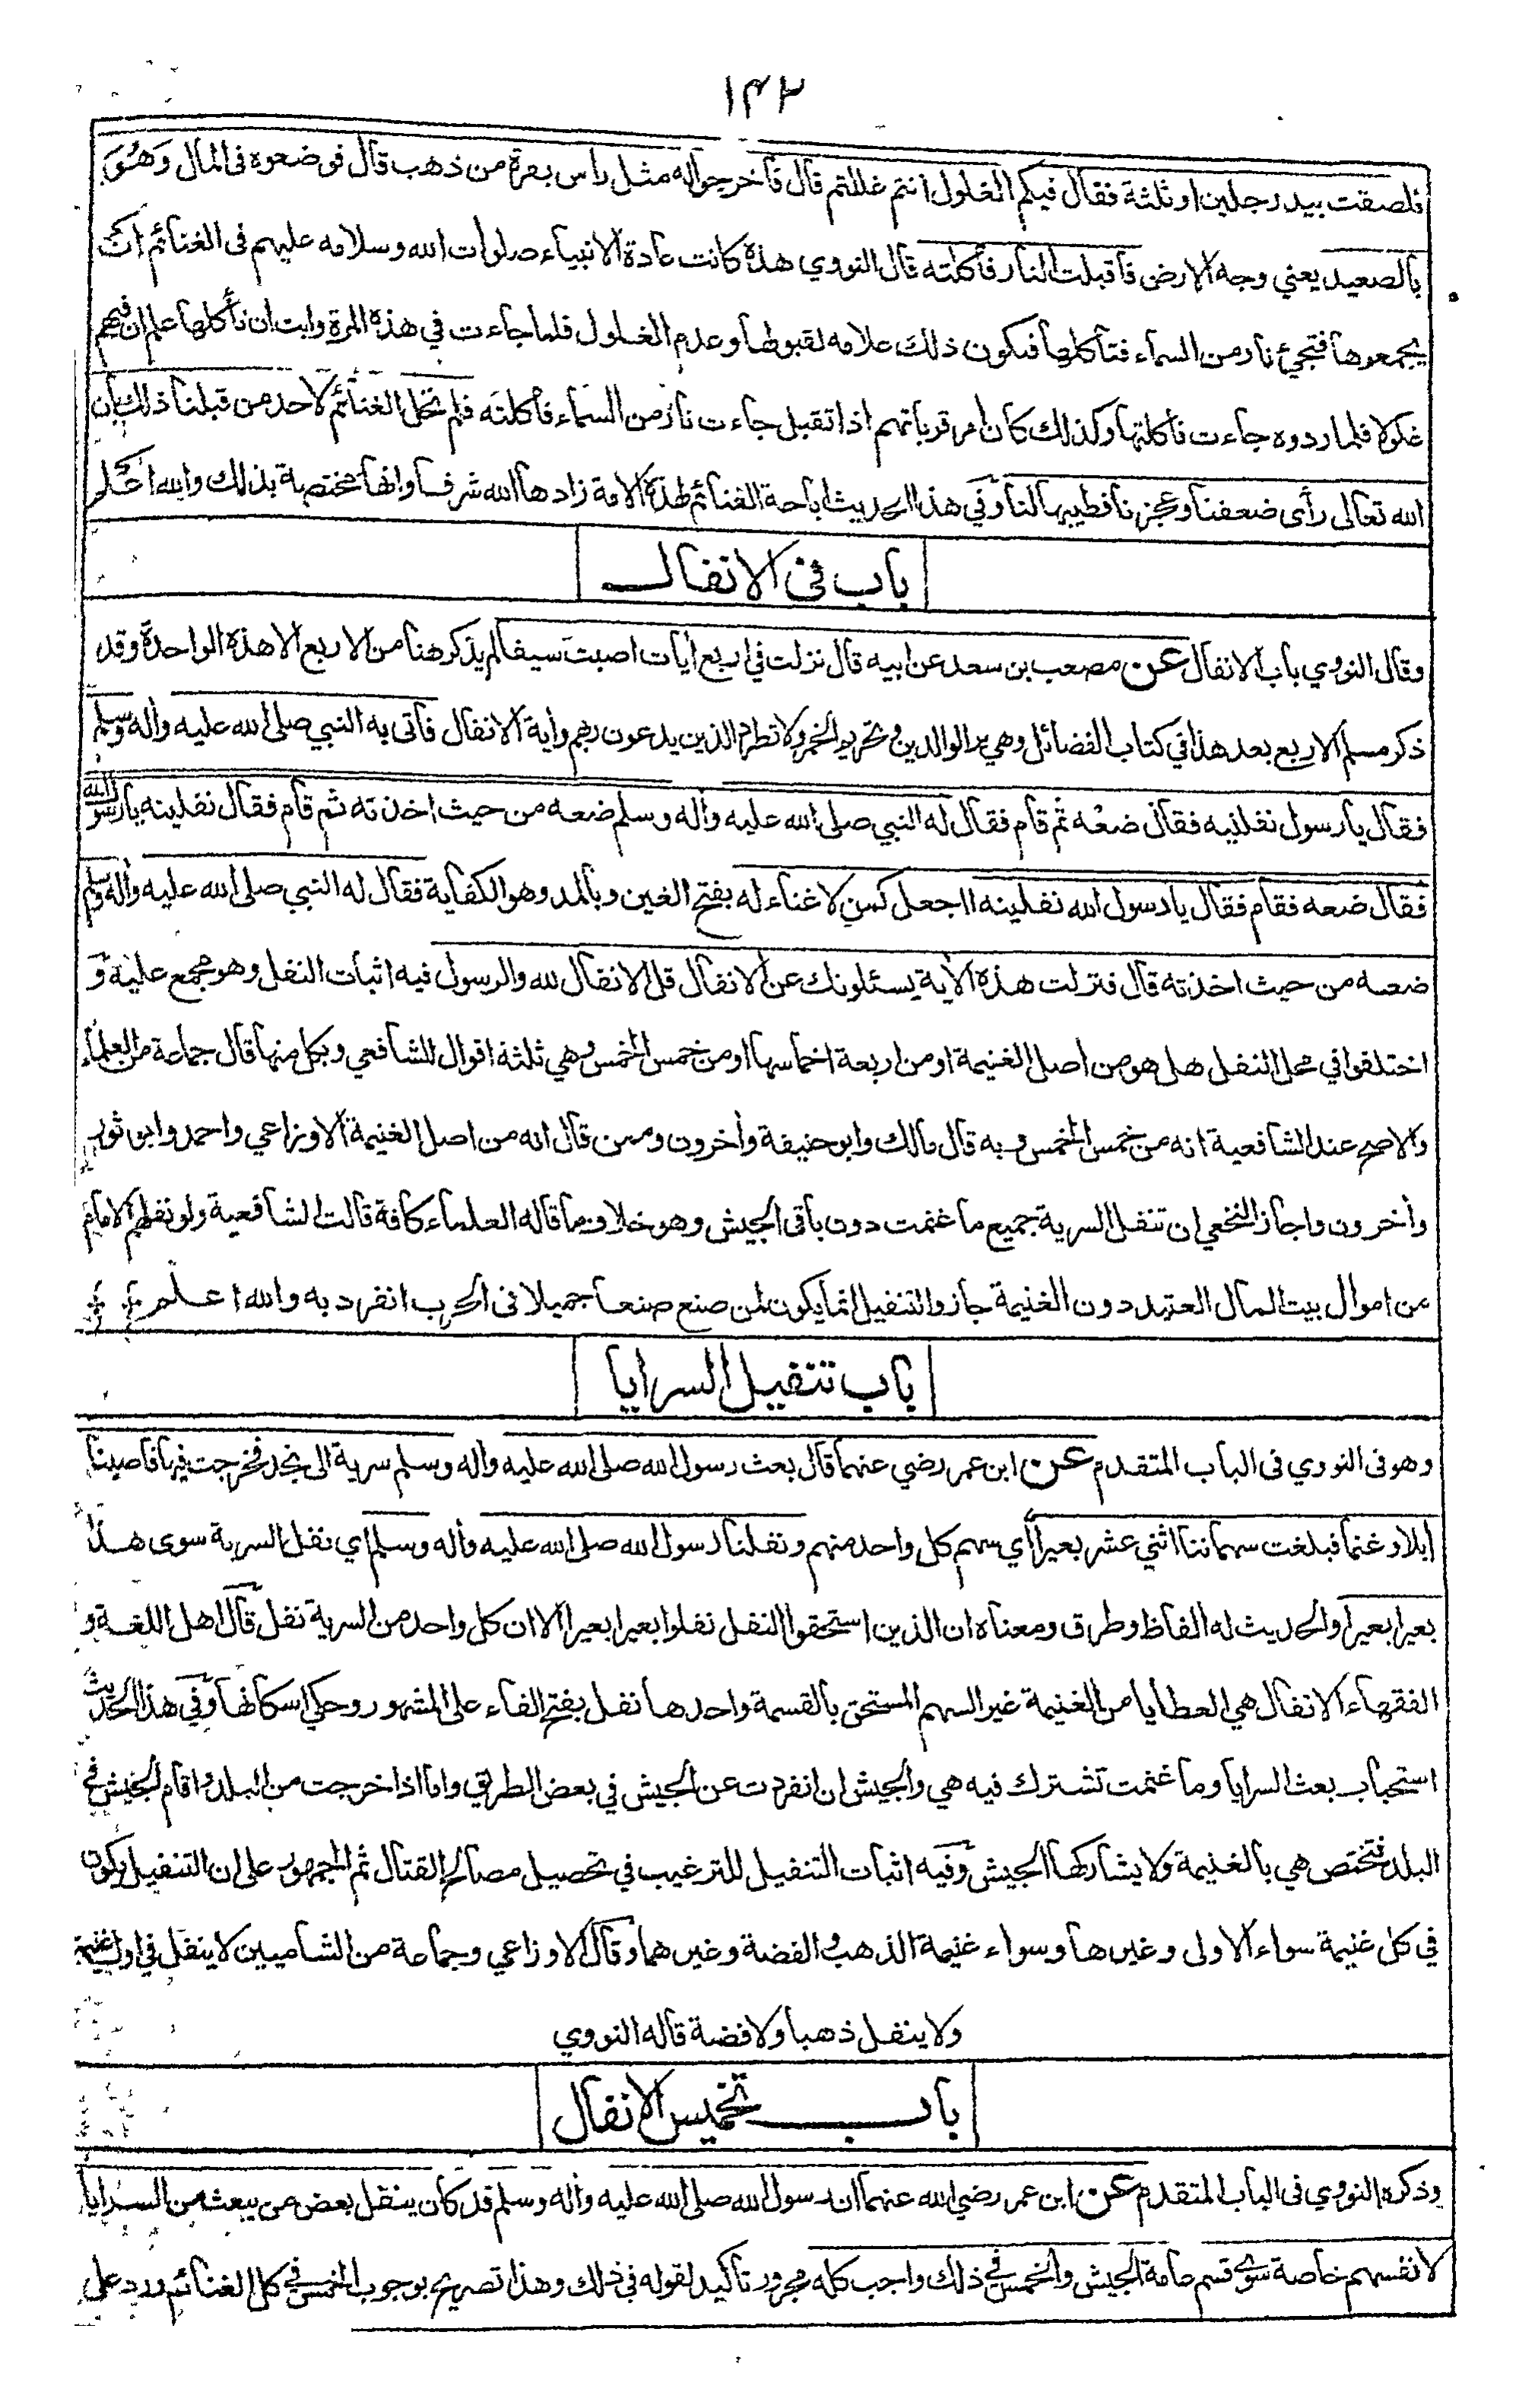 ١٤٢
فلصقت بيد رجلين او ثلثة فقال فيكم الغلول انتم غللتم قال فاخرجوا له مثل راس بقرة من ذهب قال فوضعوه فى المال وَهُوَ
بالصعيد يعني وجه الارض فاقبلت النار فأكلته قال النووي هذه كانت عادة الانبياء صلوات الله وسلامه عليهم فى الغنائم ان
يجمعوها فتجئ نار من السماء فتأكلها فيكون ذلك علامه لقبولها وعدم الغلول فلما جاءت في هذه المرة وابت ان تأكلها علم ان فيهم
غلولا فلما ردوه جاءت فأكلتها وكذلك كان امر قربانهم اذا تقبل جاءت نار من السماء فأكلته فلم تحل الغنائم لاحد من قبلنا ذلك بأن
الله تعالى رأى ضعفنا وعجزنا فطيبها لنا وفي هذا الحديث اباحة الغنائم لهذه الامة زادها الله شرفا وانها مختصة بذلك والله اعلم
باب فى الانفال
وقال النووي باب الانفال عن مصعب بن سعد عن ابيه قال نزلت في اربع أيات اصبت سيفا لم يذكر هنا من الاربع الا هذه الواحدة وقد
ذكر مسلم الاربع بعد هذا في كتاب الفضائل وهي بر الوالدين وتحريم الخمر ولا تطرد الذين يدعون ربهم وأية الانفال فأتى به النبي صلى الله عليه وأله وسلم
فقال يا رسول نفلنيه فقال ضعْه ثم قام فقال له النبي صلى الله عليه وأله وسلم ضعه من حيث اخذته ثم قام فقال نفلينه يا رسول الله
فقال ضعه فقام فقال يا رسول الله نفلينه ااجعل كمن لا غناء له بفتح الغين وبالمد وهو الكفاية فقال له النبي صلى الله عليه وأله وسلم
ضعه من حيث اخذته قال فنزلت هذه الأية يسئلونك عن الانفال قل الانفال لله والرسول فيه اثبات النفل وهو مجمع عليه وَ
اختلفوا في محل النفل هل هو من اصل الغنيمة او من اربعة اخماسها او من خمس الخمس وهي ثلثة اقوال للشافعي وبكل منها قال جماعة من العلماء
والاصح عند الشافعية انه من خمس الخمس وبه قال مالك وابو حنيفة وأخرون وممن قال انه من اصل الغنيمة الاوزاعي واحمد وابو ثور
وأخرون واجاز النخعي ان تنفل السرية جميع ما غنمت دون باقى الجيش وهو خلاف ما قاله العلماء كافة قالت الشافعية ولو نفلهم الامام
من اموال بيت المال العتيد دون الغنيمة جاز والتنفيل انما يكون لمن صنع صنعا جميلا فى الحرب انفرد به والله اعلم
باب تنفيل السرايا
وهو فى النووي فى الباب المتقدم عن ابن عمر رضي عنهما قال بعث رسول الله صلى الله عليه وأله وسلم سرية الى نجد فخرجت فيها فاصبنا
ابلا وغنما فبلغت سهماننا اثني عشر بعيرا أي سهم كل واحد منهم ونفلنا رسول الله صلى الله عليه وأله وسلم اي نفل السرية سوى هذا
بعيرا بعيرا والحديث له الفاظ وطرق ومعناه ان الذين استحقوا النفل نفلوا بعيرا بعيرا الا ان كل واحد من السرية نفل قال اهل اللغة و
الفقهاء الانفال هي العطايا من الغنيمة غير السهم المستحق بالقسمة واحدها نفل بفتح الفاء على المشهور وحكي اسكانها وفي هذا الحديث
استحباب بعث السرايا وما غنمت تشترك فيه هي والجيش ان انفردت عن الجيش في بعض الطريق واما اذا خرجت من البلد واقام الجيش في
البلد فتختص هي بالغنيمة ولا يشاركها الجيش وفيه اثبات التنفيل للترغيب في تحصيل مصالح القتال ثم الجمهور على ان التنفيل يكون
في كل غنيمة سواء الاولى وغيرها وسواء غنيمة الذهب والفضة وغيرهما وقال الاوزاعي وجماعة من الشاميين لا ينفل في اول غنيمة
ولا ينفل ذهبا ولا فضة قاله النووي
باب تخميس الانفال
وذكره النووي فى الباب المتقدم عن ابن عمر رضي الله عنهما ان رسول الله صلى الله عليه وأله وسلم قد كان ينفل بعض من يبعث من السرايا
لانفسهم خاصة سوى قسم عامة الجيش والخمس في ذلك واجب كله مجرور تأكيد لقوله في ذلك وهذا تصريح بوجوب الخمس في كل الغنائم ورد على